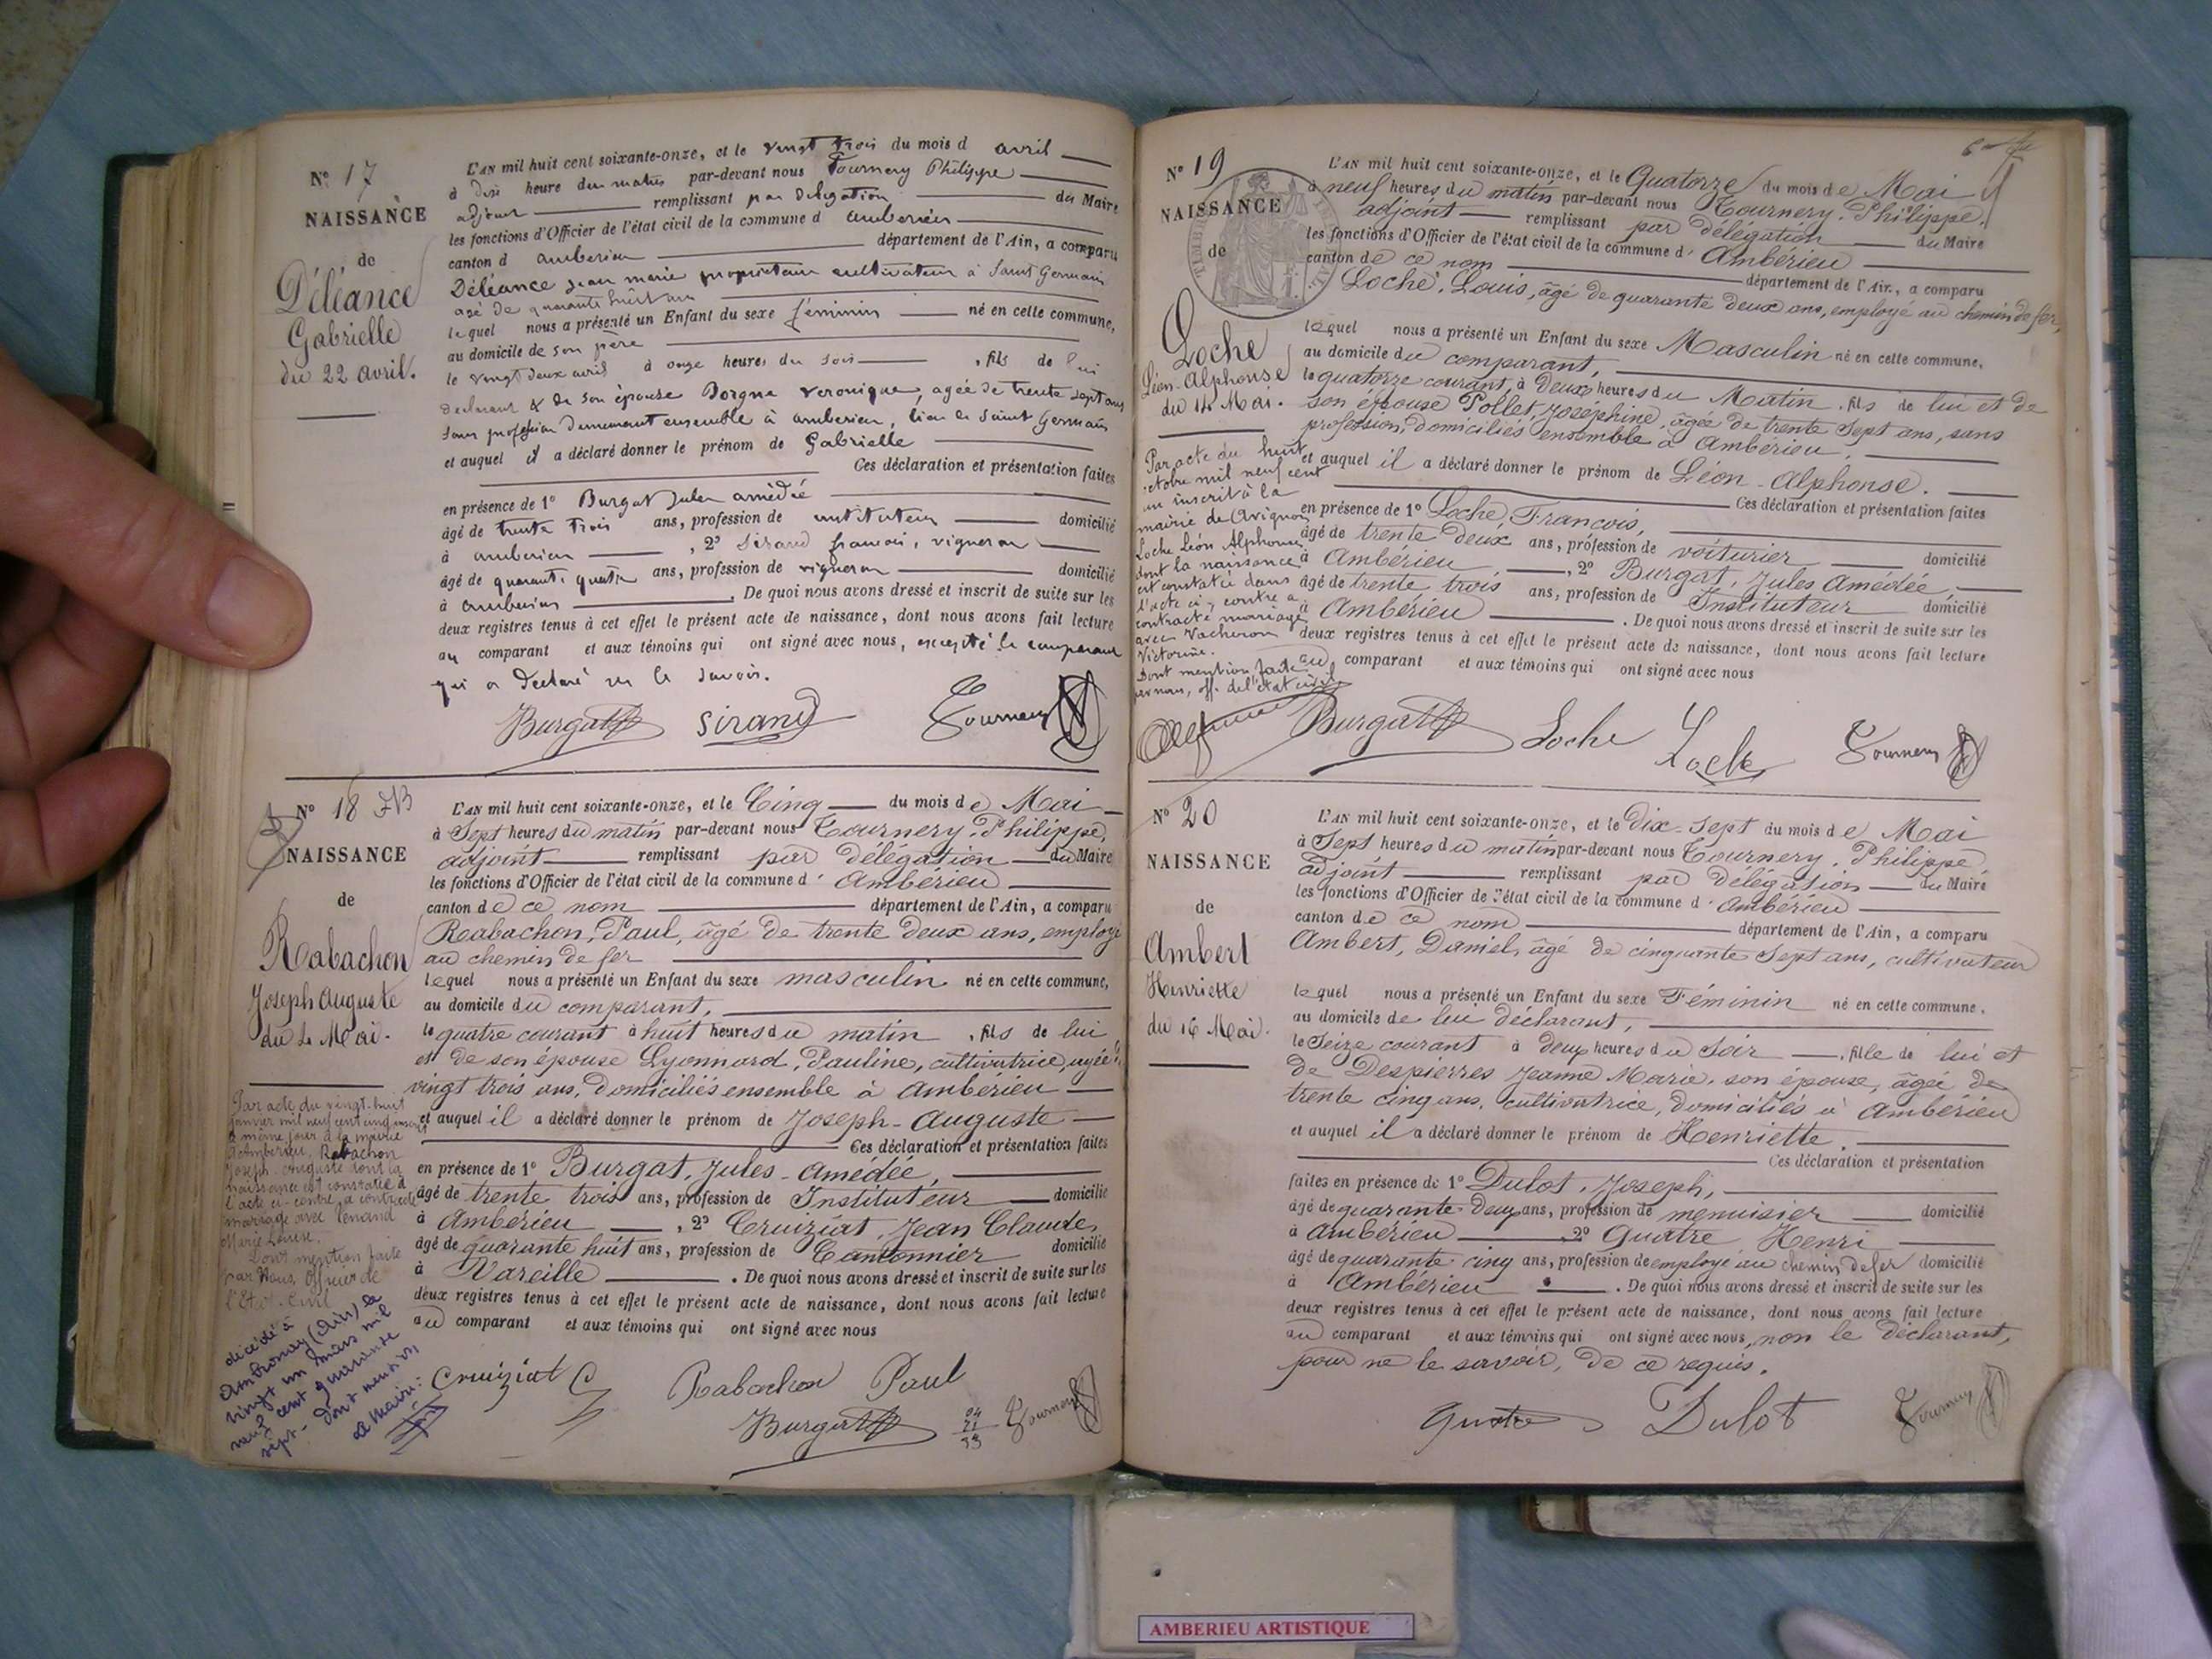 N° 17
NAISSANCE
de
Déléance
Gabrielle
du 22 avril.
L'AN mil huit cent soixante-onze, et le vingt trois du mois d avril
à dix heure du matin par-devant nous Tournery Philippe
adjoint remplissant par délégation du Maire
les fonctions d'Officier de l'état civil de la commune d amberieu
canton d amberieu département de l'Ain, a comparu
Déléance jean marie proprietaire cultivateur à Saint Germain
agé de quarante huit ans
lequel nous a présenté un Enfant du sexe féminin né en cette commune,
au domicile de son père
le vingt deux avril à onze heures du soir , fils de lui
declarant & de son épouse Dorgne veronique, agée de trente sept ans
sans profession demeurant ensemble à amberieu, lieu de Saint Germain
et auquel il a déclaré donner le prénom de Gabrielle
Ces déclaration et présentation faites
en présence de 1° Burgat Jules amédée
âgé de trente trois ans, profession de instituteur domicilié
à amberieu , 2° Sirand francois, vigneron
âgé de quarante quatre ans, profession de vigneron domicilié
à amberieu . De quoi nous avons dressé et inscrit de suite sur les
deux registres tenus à cet effet le présent acte de naissance, dont nous avons fait lecture
au comparant et aux témoins qui ont signé avec nous, excepté le comparant
qui a declaré ne le savoir.
Burgat Sirand Tournery
N° 18
NAISSANCE
de
Rabachon
Joseph Auguste
du 4 Mai.
L'AN mil huit cent soixante-onze, et le Cinq du mois de Mai
à Sept heures du matin par-devant nous Tournery, Philippe,
adjoint remplissant par délégation du Maire
les fonctions d'Officier de l'état civil de la commune d' Ambérieu
canton de ce nom département de l'Ain, a comparu
Rabachon, Paul, âgé de trente deux ans, employé
au chemin de fer
lequel nous a présenté un Enfant du sexe masculin né en cette commune,
au domicile du comparant,
le quatre courant à huit heures du matin , fils de lui
et de son épouse Lyonnard, Pauline, cultivatrice, agée de
vingt trois ans, domiciliés ensemble à Ambérieu
et auquel il a déclaré donner le prénom de Joseph-Auguste
Ces déclaration et présentation faites
en présence de 1° Burgat, Jules-Amédée,
âgé de trente trois ans, profession de Instituteur domicilié
à Ambérieu , 2° Cruiziat, Jean Claude,
âgé de quarante huit ans, profession de Cantonnier domicilié
à Vareille . De quoi nous avons dressé et inscrit de suite sur les
deux registres tenus à cet effet le présent acte de naissance, dont nous avons fait lecture
au comparant et aux témoins qui ont signé avec nous
Par acte du vingt-huit
janvier mil neuf cent cinq inscrit
le même jour à la mairie
d'Ambérieu, Rabachon
Joseph-Auguste dont la
naissance est constatée à
l'acte ci-contre, a contracté
mariage avec Venand
Marie Louise.
Dont mention faite
par Nous, Officier de
l'Etat-Civil
décédé à
Ambronay (Ain) le
vingt un mars mil
neuf cent quarante
sept - dont mention
Le Maire:
Cruiziat C Rabachon Paul
Burgat Tournery
N° 19
NAISSANCE
de
Loche
Léon-Alphonse
du 14 Mai.
L'AN mil huit cent soixante-onze, et le Quatorze du mois de Mai
à neuf heures du matin par-devant nous Tournery, Philippe,
adjoint remplissant par délégation du Maire
les fonctions d'Officier de l'état civil de la commune d' Ambérieu
canton de ce nom département de l'Ain, a comparu
Loche, Louis, âgé de quarante deux ans, employé au chemin de fer,
lequel nous a présenté un Enfant du sexe Masculin né en cette commune,
au domicile du comparant,
le quatorze courant, à Deux heures du Matin , fils de lui et de
son épouse Pollet, Joséphine, âgée de trente sept ans, sans
profession, domiciliés ensemble à Ambérieu.
et auquel il a déclaré donner le prénom de Léon-Alphonse.
Ces déclaration et présentation faites
en présence de 1° Loche, Francois,
âgé de trente deux ans, profession de voiturier domicilié
à Ambérieu , 2° Burgat, Jules Amédée,
âgé de trente trois ans, profession de Instituteur domicilié
à Ambérieu . De quoi nous avons dressé et inscrit de suite sur les
deux registres tenus à cet effet le présent acte de naissance, dont nous avons fait lecture
au comparant et aux témoins qui ont signé avec nous
Par acte du huit
octobre mil neuf cent
un inscrit à la
mairie de Avignon
Loche Léon Alphonse
dont la naissance
est constatée dans
l'acte ci-contre a
contracté mariage
avec Vacheron
Victorine.
Dont mention faite
par nous, off. de l'état civil
Burgat Loche Loche Tournery
N° 20
NAISSANCE
de
Ambert
Henriette
du 16 Mai.
L'AN mil huit cent soixante-onze, et le dix-sept du mois de Mai
à Sept heures du matin par-devant nous Tournery, Philippe
adjoint remplissant par délégation du Maire
les fonctions d'Officier de l'état civil de la commune d' Ambérieu
canton de ce nom département de l'Ain, a comparu
Ambert, Daniel, âgé de cinquante Sept ans, cultivateur
lequel nous a présenté un Enfant du sexe Féminin né en cette commune,
au domicile de lui déclarant,
le Seize courant à deux heures du Soir , fille de lui et
de Despierres Jeanne Marie, son épouse, âgée de
trente cinq ans, cultivatrice, domiciliés à Ambérieu
et auquel il a déclaré donner le prénom de Henriette.
Ces déclaration et présentation
faites en présence de 1° Dulot, Joseph,
âgé de quarante-deux ans, profession de menuisier domicilié
à Ambérieu , 2° Quatre, Henri
âgé de quarante cinq ans, profession de employé au chemin de fer domicilié
à Ambérieu . De quoi nous avons dressé et inscrit de suite sur les
deux registres tenus à cet effet le présent acte de naissance, dont nous avons fait lecture
au comparant et aux témoins qui ont signé avec nous, non le déclarant,
pour ne le savoir, de ce requis.
Quatre Dulot Tournery
AMBERIEU ARTISTIQUE